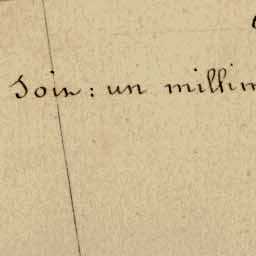 Soit : un millim